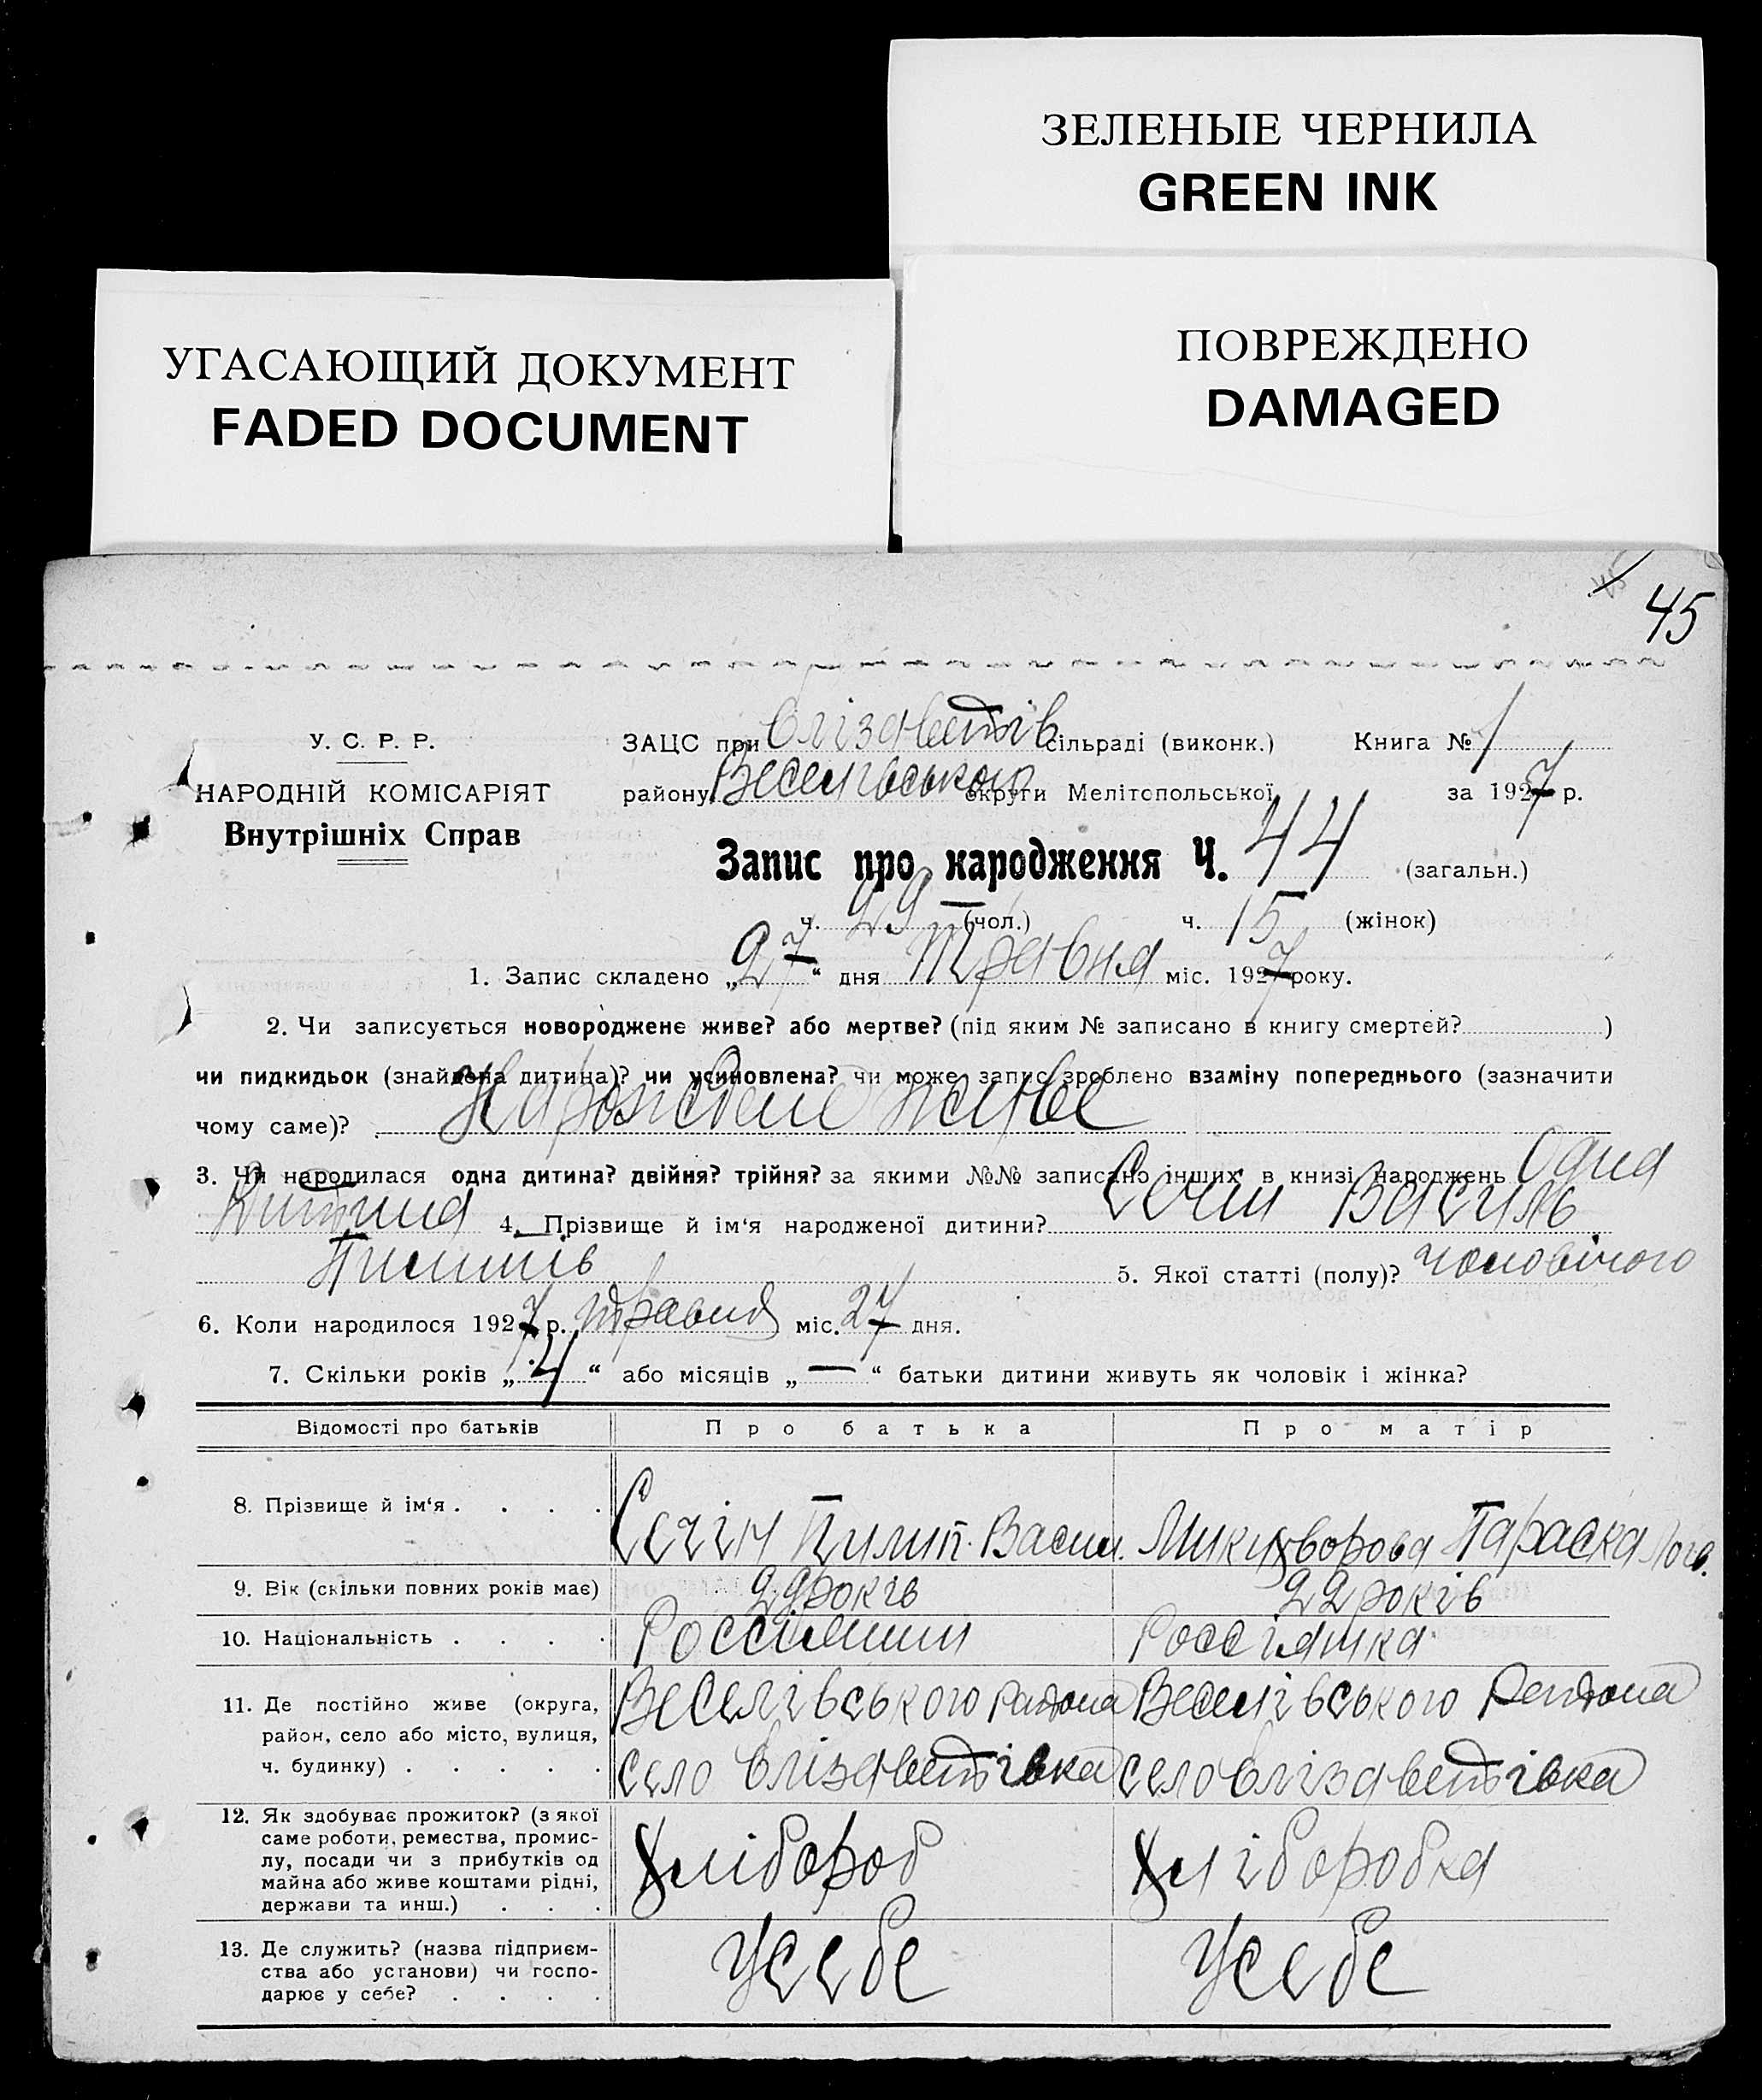 ЗЕЛЕНЫЕ ЧЕРНИЛА
GREEN INK
УГАСАЮЩИЙ ДОКУМЕНТ
FADED DOCUMENT
ПОВРЕЖДЕНО
DAMAGED
45
У. С. Р. Р.
НАРОДНІЙ КОМІСАРІЯТ
Внутрішніх Справ
ЗАЦС при Єлізаветів сільраді (виконк.) Книга № 1
району Веселівського округи Мелітопольської за 1927 р.
Запис про народження Ч. 44 (загальн.)
ч. 29 (чол.) ч. 15 (жінок)
1. Запис складено „27“ дня Травня міс. 1927 року.
2. Чи записується новороджене живе? або мертве? (під яким № записано в книгу смертей? )
чи пидкидьок (знайдена дитина)? чи усиновлена? чи може запис зроблено взаміну попереднього (зазначити
чому саме)? Нарождене живе
3. Чи народилася одна дитина? двійня? трійня? за якими №№ записано інших в книзі народжень Одна
Дитина 4. Прізвище й ім‘я народженої дитини? Сечин Василь
5. Якої статті (полу)? чоловічого
6. Коли народилося 1927 р. травня міс. 27 дня.
7. Скільки років „4“ або місяців „—“ батьки дитини живуть як чоловік і жінка?
Відомості про батьків Про батька Про матір
8. Прізвище й ім‘я . . . . Сечін Пилип. Васил. Параска
9. Вік (скільки повних років має) 29 років 22 років
10. Національність . . . . Россіянин Россіянка
11. Де постійно живе (округа, Веселівського района Веселівського района
район, село або місто, вулиця,
ч. будинку) . . . . . село Єлізаветівка село Єлізаветівка
12. Як здобуває прожиток? (з якої
саме роботи, ремества, промис-
лу, посади чи з прибутків од Хлібороб Хліборобка
майна або живе коштами рідні,
держави та инш.) . . .
13. Де служить? (назва підприєм-
ства або установи) чи госпо- Усебе Усебе
дарює у себе? . . . .